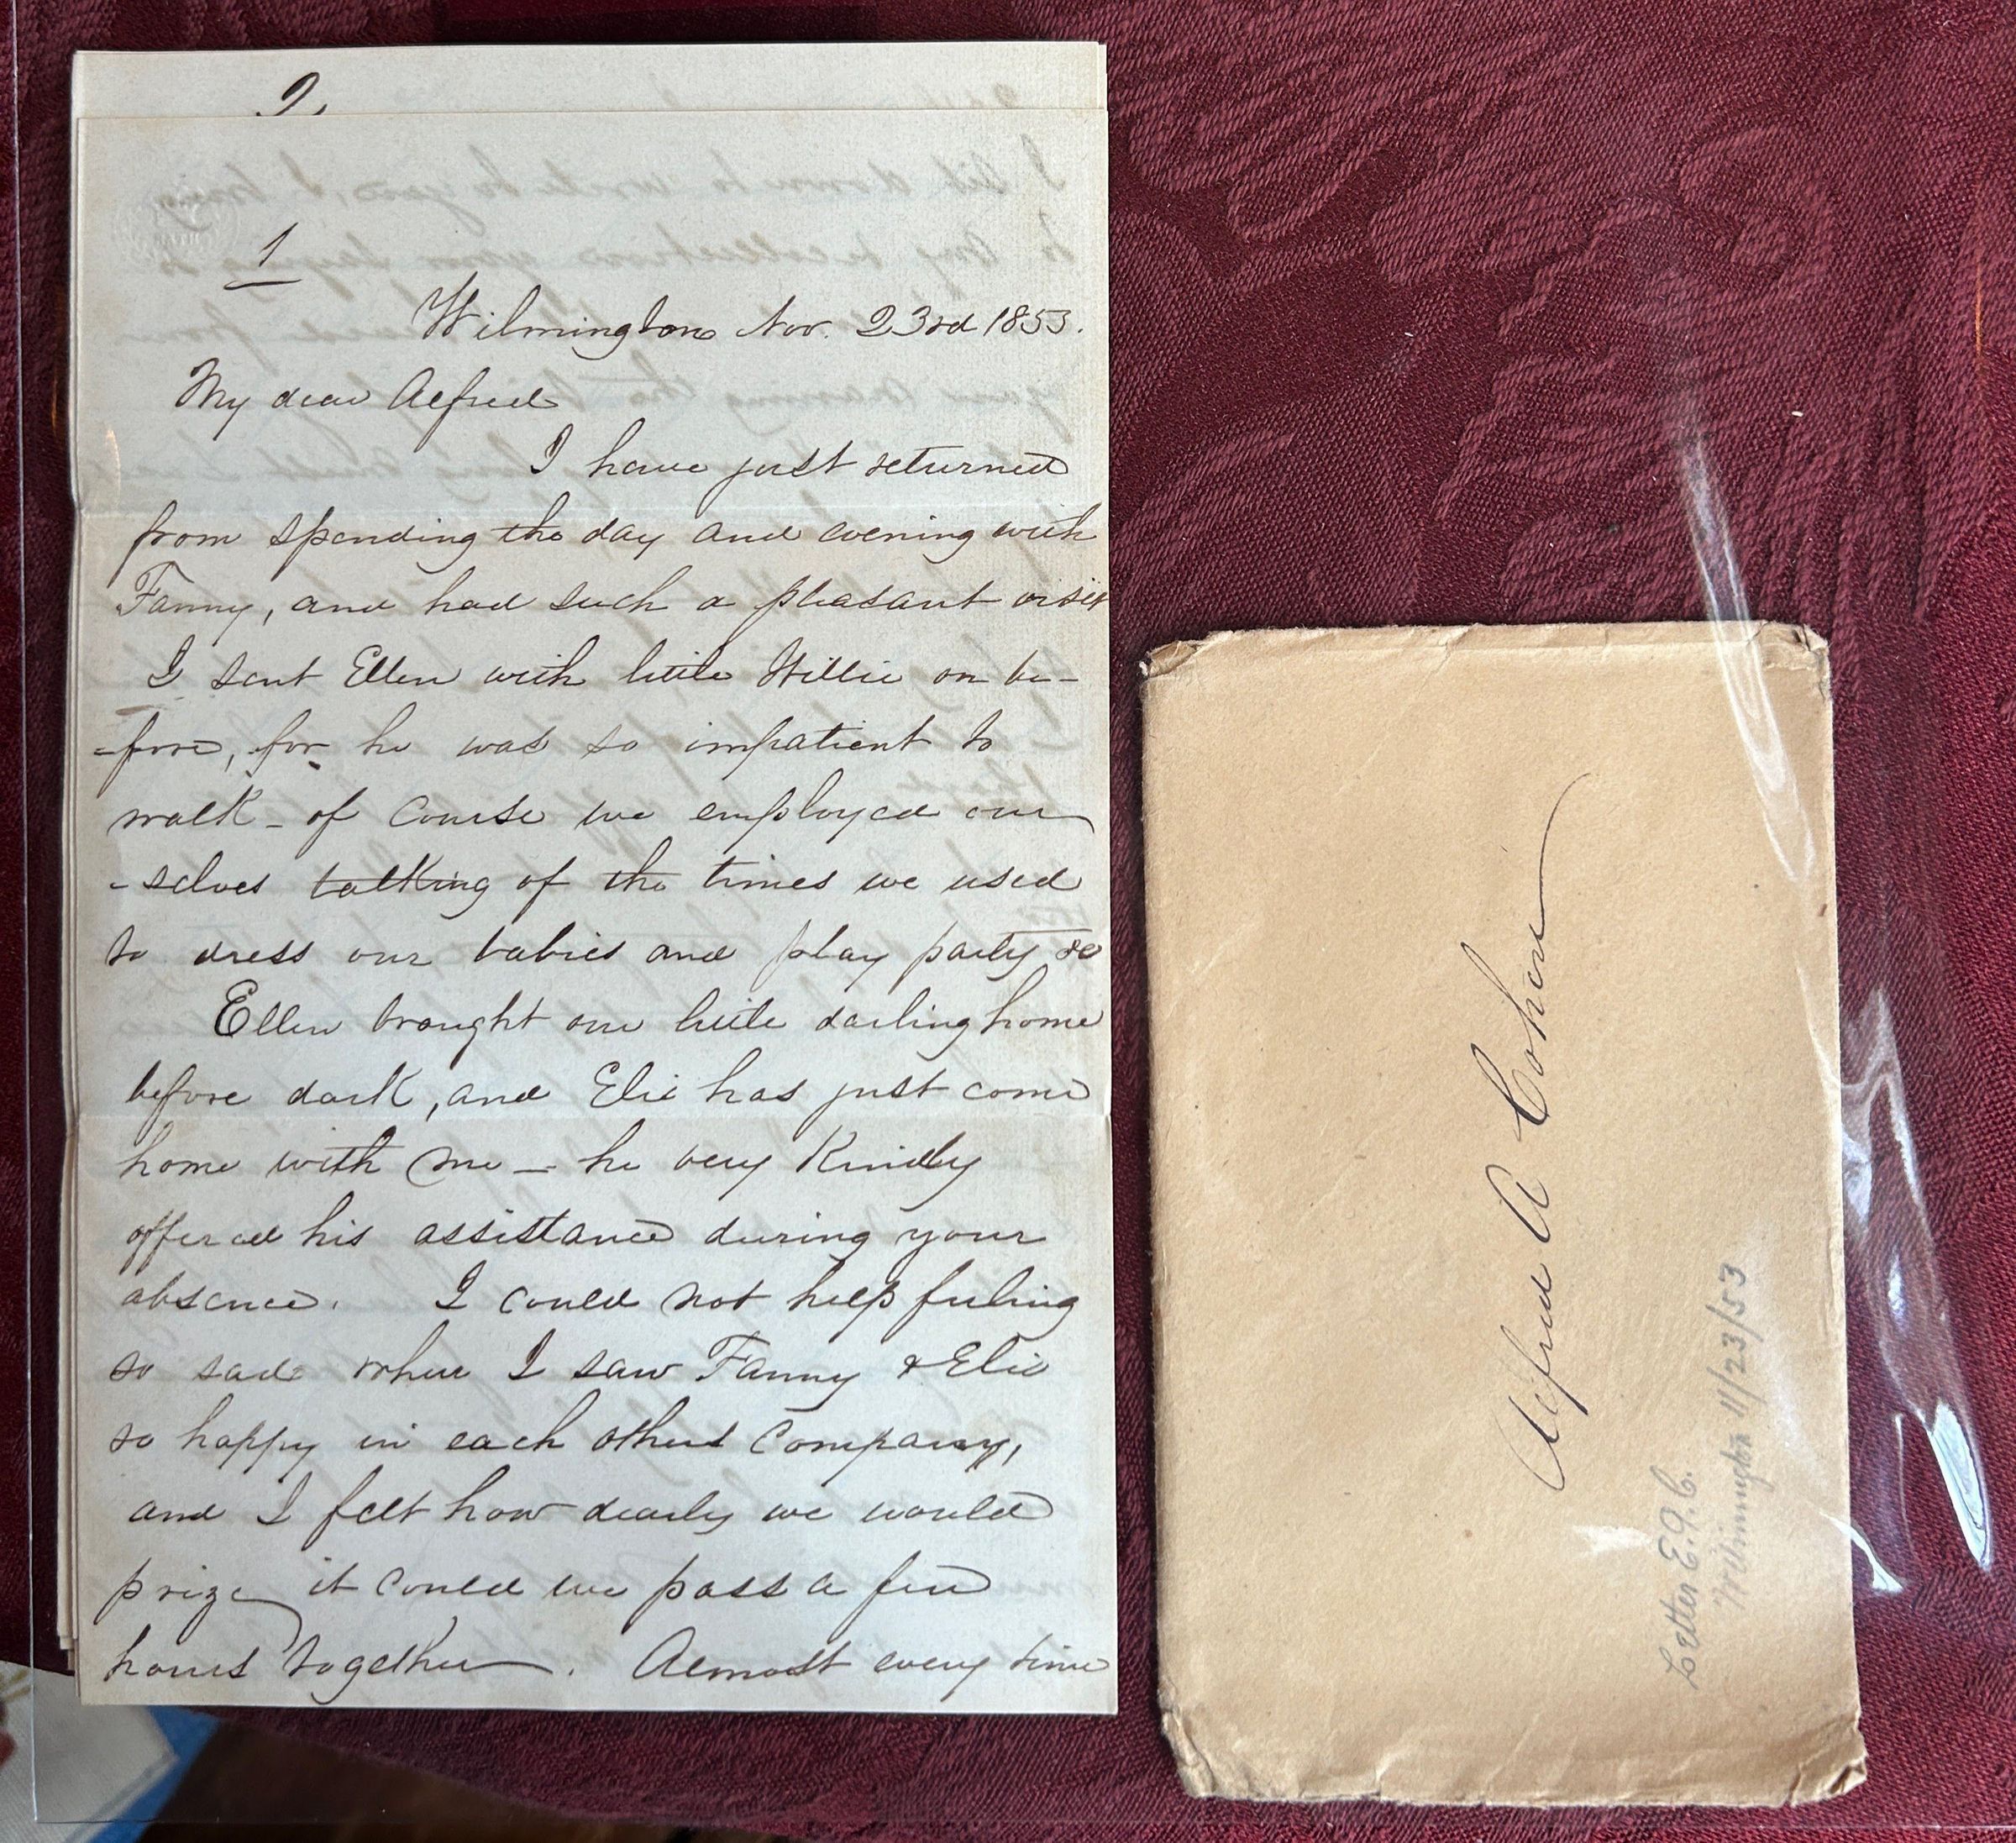 2.
1
Wilmington Nov. 23rd 1853.
My dear Alfred
I have just returned
from spending the day and evening with
Fanny, and had such a pleasant visit
I sent Ellen with little Willie on be-
-fore, for he was so impatient to
walk - of course we employed our
-selves talking of the times we used
to dress our babies and play party &c
Ellen brought our little darling home
before dark, and Elie has just come
home with me - he very kindly
offered his assistance during your
absence. I could not help feeling
so sad when I saw Fanny & Elie
so happy in each others company,
and I felt how dearly we would
prize it could we pass a few
hours together. Almost every time
Alfred A Cohen
Letter E.G.C.
Wilmington 11/23/53